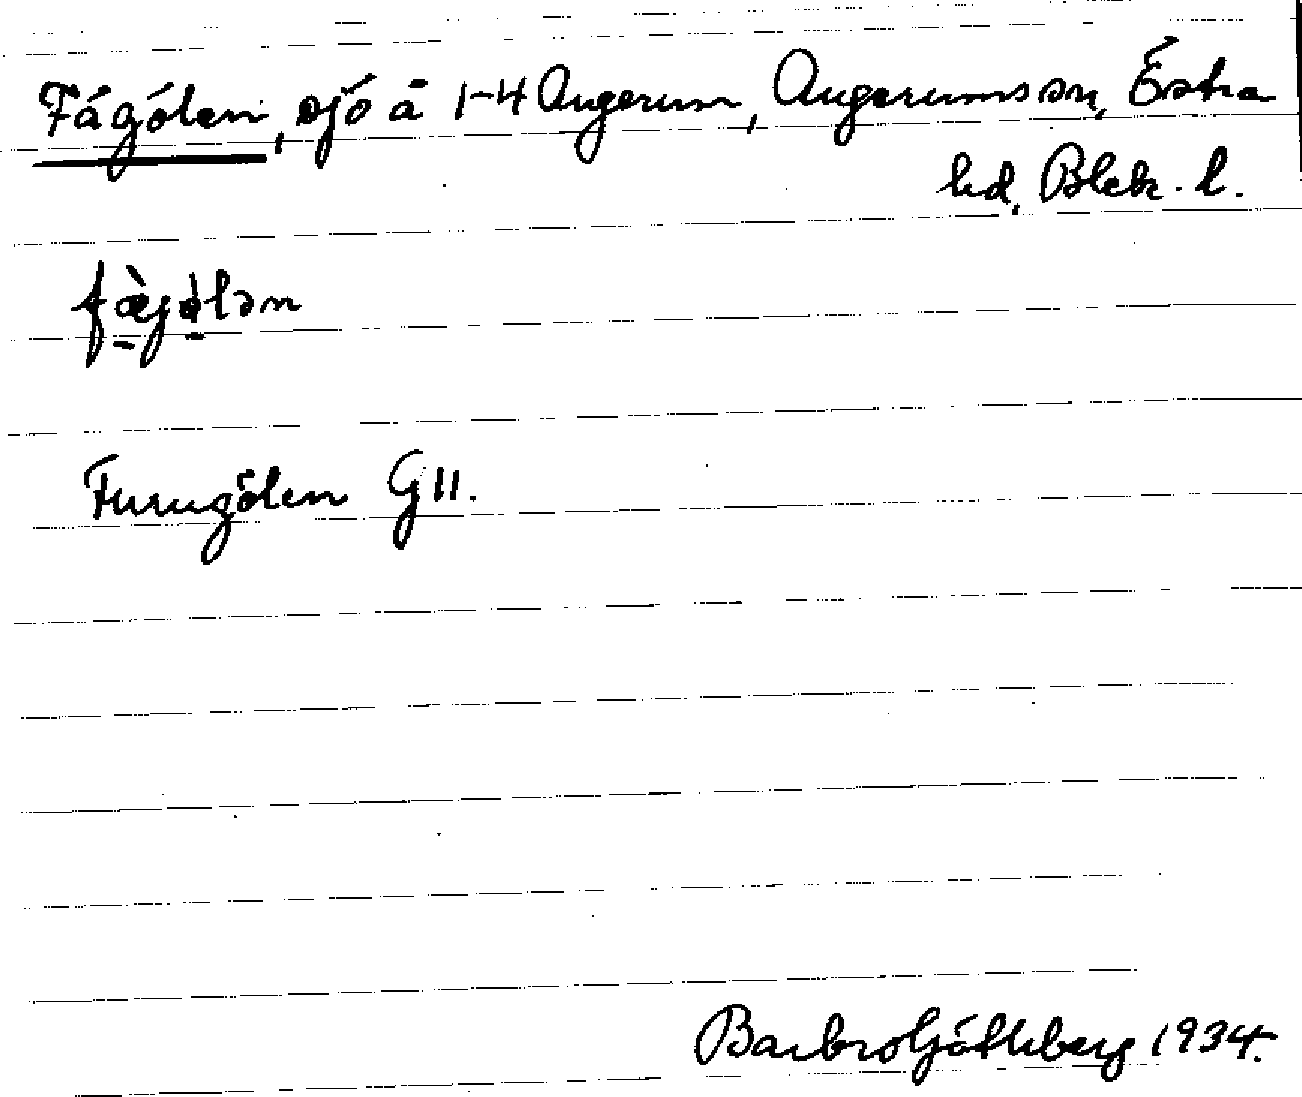 Fågölen, sjö å 1-4 Augerum, Augerums sn, Östra
hd, Blek. l.
Furugölen G11.
Barbro Göthberg 1934.